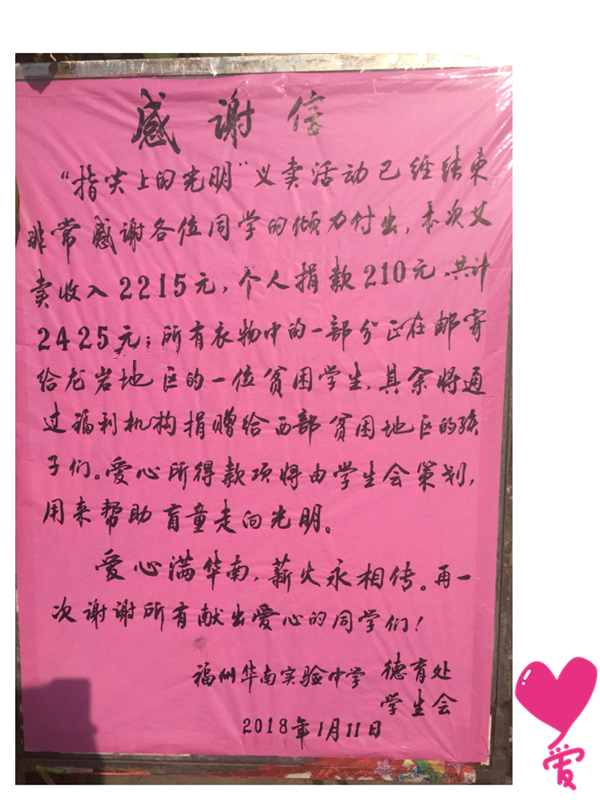 感谢信
“指尖上的光明”义卖活动已经结束
非常感谢各位同学的倾力付出，本次义
卖收入2215元，个人捐款210元，共计
2425元；所有衣物中的一部分正在邮寄
给龙岩地区的一位贫困学生，其余将通
过福利机构捐赠给西部贫困地区的孩
子们。爱心所得款项将由学生会策划，
用来帮助盲童走向光明。
爱心满华南，薪火永相传。再一
次谢谢所有献出爱心的同学们！
福州华南实验中学 德育处
学生会
2018年1月11日
爱